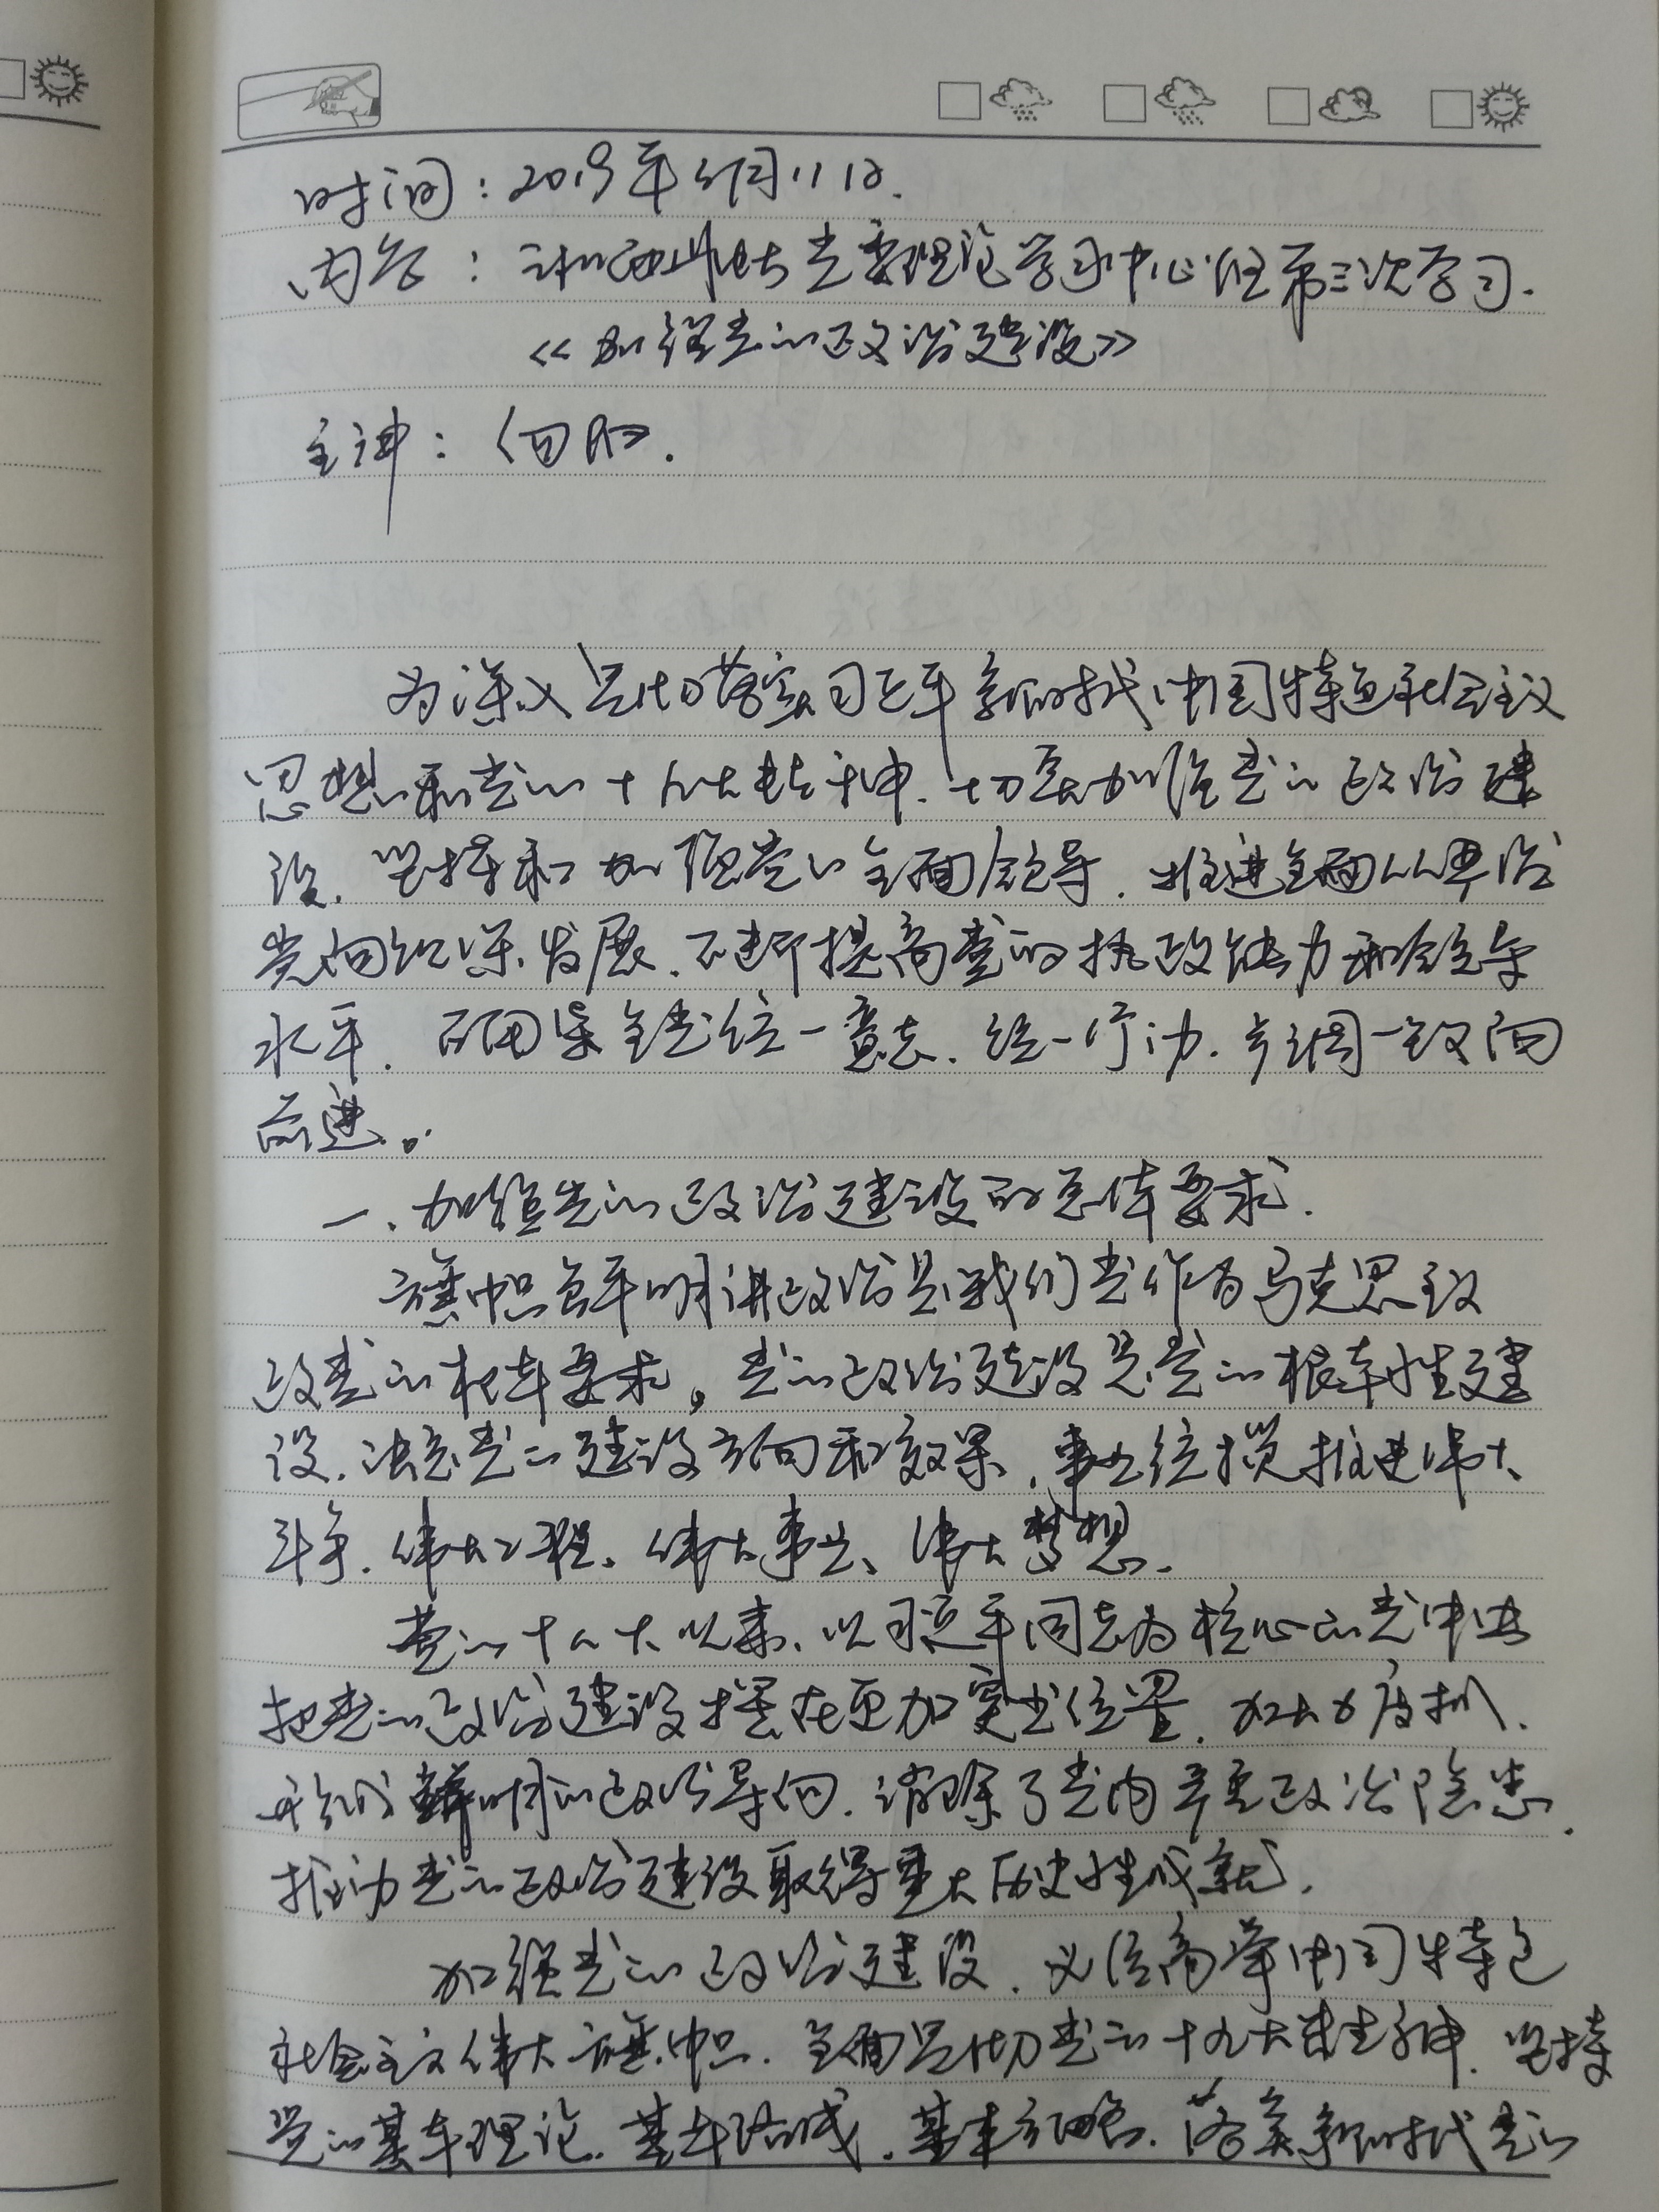 时间：2019年5月11日.
内容： 党委理论学习中心组第三次学习.
《加强党的政治建设》
主讲：
为深入贯彻落实习近平新时代中国特色社会主义
思想和党的十九大精神.切实加强党的政治建
设.坚持和加强党的全面领导.推进全面从严治
党向纵深发展.不断提高党的执政能力和领导
水平.确保全党统一意志、统一行动.步调一致向
前进。
一、加强党的政治建设的总体要求.
旗帜鲜明讲政治是我们党作为马克思主义
政党的根本要求。党的政治建设是党的根本性建
设.决定党的建设方向和效果.事业统揽推进伟大
斗争.伟大工程、伟大事业、伟大梦想.
党的十八大以来、以习近平同志为核心的党中央
把党的政治建设摆在更加突出位置.加大力度抓.
形成鲜明的政治导向.消除了党内严重政治隐患.
推动党的政治建设取得重大历史性成就.
加强党的政治建设.必须高举中国特色
社会主义伟大旗帜.全面贯彻党的十九大精神.坚持
党的基本理论.基本路线.基本方略.落实新时代党的